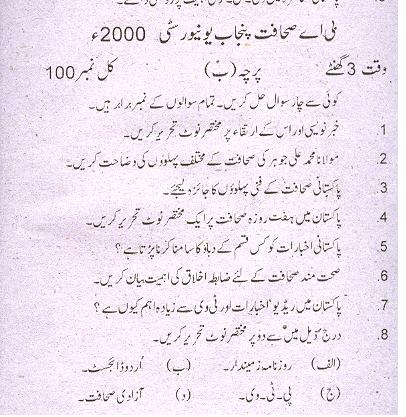 بی اے صحافت پنجاب یونیورسٹی 2000ء
وقت 3 گھنٹے پرچہ (ب) کل نمبر 100
کوئی سے چار سوال حل کریں۔ تمام سوالوں کے نمبر برابر ہیں۔
1. خبر نویسی اور اس کے ارتقاء پر مختصر نوٹ تحریر کریں۔
2. مولانا محمد علی جوہر کی صحافت کے مختلف پہلوؤں کی وضاحت کریں۔
3. پاکستانی صحافت کے فنی پہلوؤں کا جائزہ لیجئے۔
4. پاکستان میں ہفت روزہ صحافت پر ایک مختصر نوٹ تحریر کریں۔
5. پاکستانی اخبارات کو کس قسم کے دباؤ کا سامنا کرنا پڑتا ہے؟
6. صحت مند صحافت کے لئے ضابطہ اخلاق کی اہمیت بیان کریں۔
7. پاکستان میں ریڈیو' اخبارات اور ٹی وی سے زیادہ اہم کیوں ہے؟
8. درج ذیل میں سے دو پر مختصر نوٹ تحریر کریں۔
(الف) روزنامہ زمیندار۔ (ب) اُردو ڈائجسٹ۔
(ج) پی۔ٹی۔وی۔ (د) آزادی صحافت۔